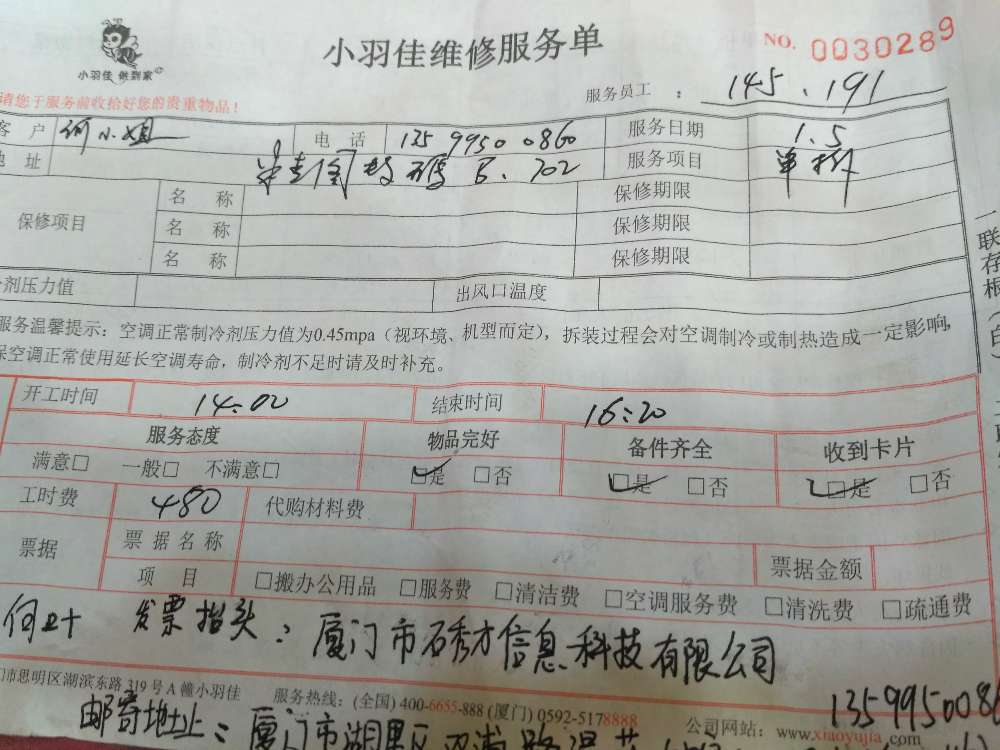 小羽佳 做到家
小羽佳维修服务单
NO. 0030289
请您于服务前收拾好您的贵重物品！
服务员工： 145、191
客 户 何小姐 电 话 13599500860 服务日期 1.5
地 址 6. 702 服务项目 单拆
保修项目 名 称 保修期限
名 称 保修期限
名 称 保修期限
剂压力值 出风口温度
服务温馨提示：空调正常制冷剂压力值为0.45mpa（视环境、机型而定），拆装过程会对空调制冷或制热造成一定影响，
保空调正常使用延长空调寿命，制冷剂不足时请及时补充。
开工时间 14:02 结束时间 16:20
服务态度 物品完好 备件齐全 收到卡片
满意□ 一般□ 不满意□ ☑是 □否 ☑是 □否 ☑是 □否
工时费 480 代购材料费
票据 票据名称 票据金额
项 目 □搬办公用品 □服务费 □清洁费 □空调服务费 □清洗费 □疏通费
何 发票抬头：厦门市石秀才信息科技有限公司
门市思明区湖滨东路 319 号 A 幢小羽佳 服务热线：(全国) 400-6655-888 (厦门) 0592-5178888
公司网站：www.xiaoyujia.com
1359950086
邮寄地址：厦门市湖里区
一联存根（白）